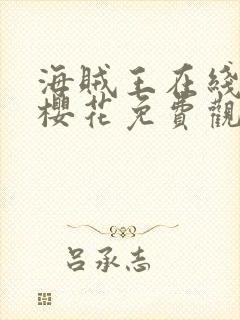 海賊王在綫
櫻花免費觀
呂承志